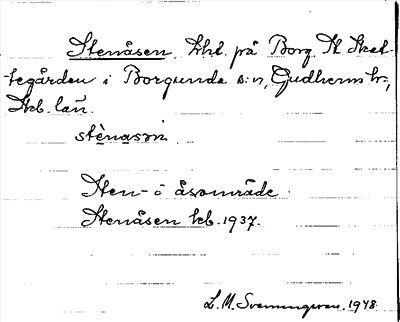 Stenåsen, lht. på Borg. St. Skat-
tegården i Borgunda s:n, Gudhems hr,
Skb. län.
stènasɔn
Sten- o åsområde.
Stenåsen kb. 1937.
L. M. Svenungsson. 1948